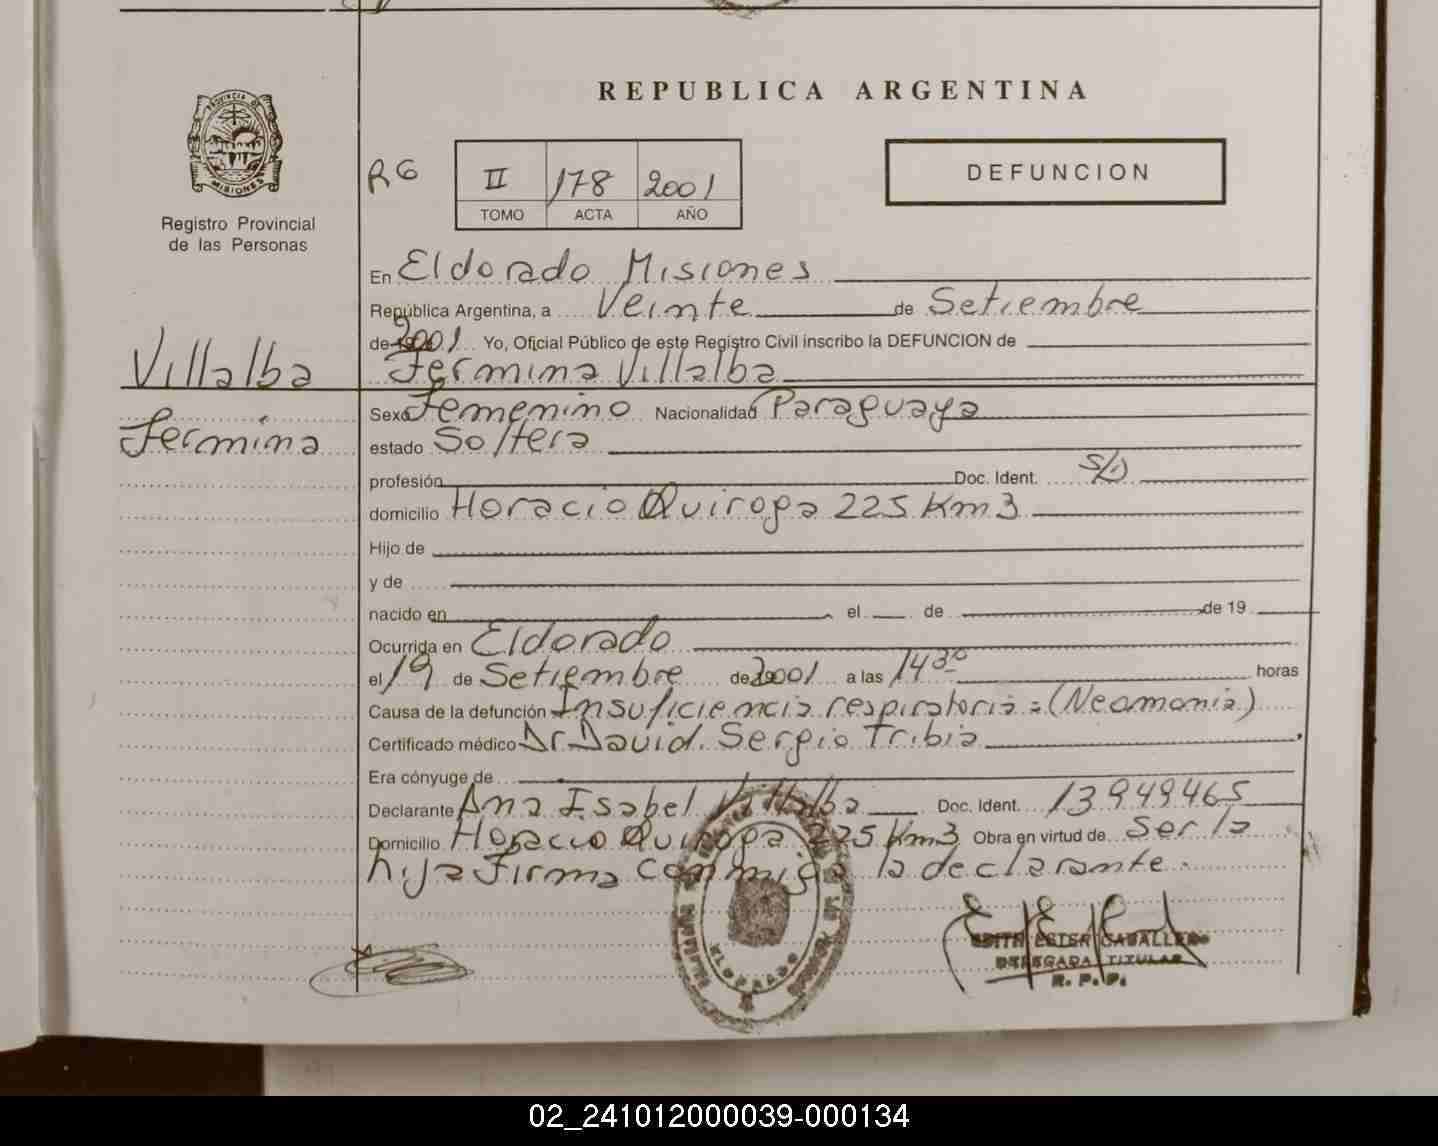 REPUBLICA ARGENTINA
PROVINCIA DE
MISIONES
Registro Provincial
de las Personas
RG
II 178 2001
TOMO ACTA AÑO
DEFUNCION
En Eldorado Misiones
República Argentina, a Veinte de Setiembre
de 2001 Yo, Oficial Público de este Registro Civil inscribo la DEFUNCION de
Villalba
Fermina Villalba
Fermina
Sexo Femenino Nacionalidad Paraguaya
estado Soltera
profesión Doc. Ident. S/D
domicilio Horacio Quiroga 225 Km3
Hijo de
y de
nacido en el de de 19
Ocurrida en Eldorado
el 19 de Setiembre de 2001 a las 14 30 horas
Causa de la defunción Insuficiencia respiratoria = (Neamonia)
Certificado médico Dr David. Sergio Tribia
Era cónyuge de
Declarante Ana Isabel Villalba Doc. Ident. 13949465
Domicilio Horacio Quiroga 225 Km3 Obra en virtud de Ser la
hija Firma conmigo la declarante.
ELDORADO
EDITH ESTER CABALLERO
DELEGADA TITULAR
R. P. P.
02_241012000039-000134